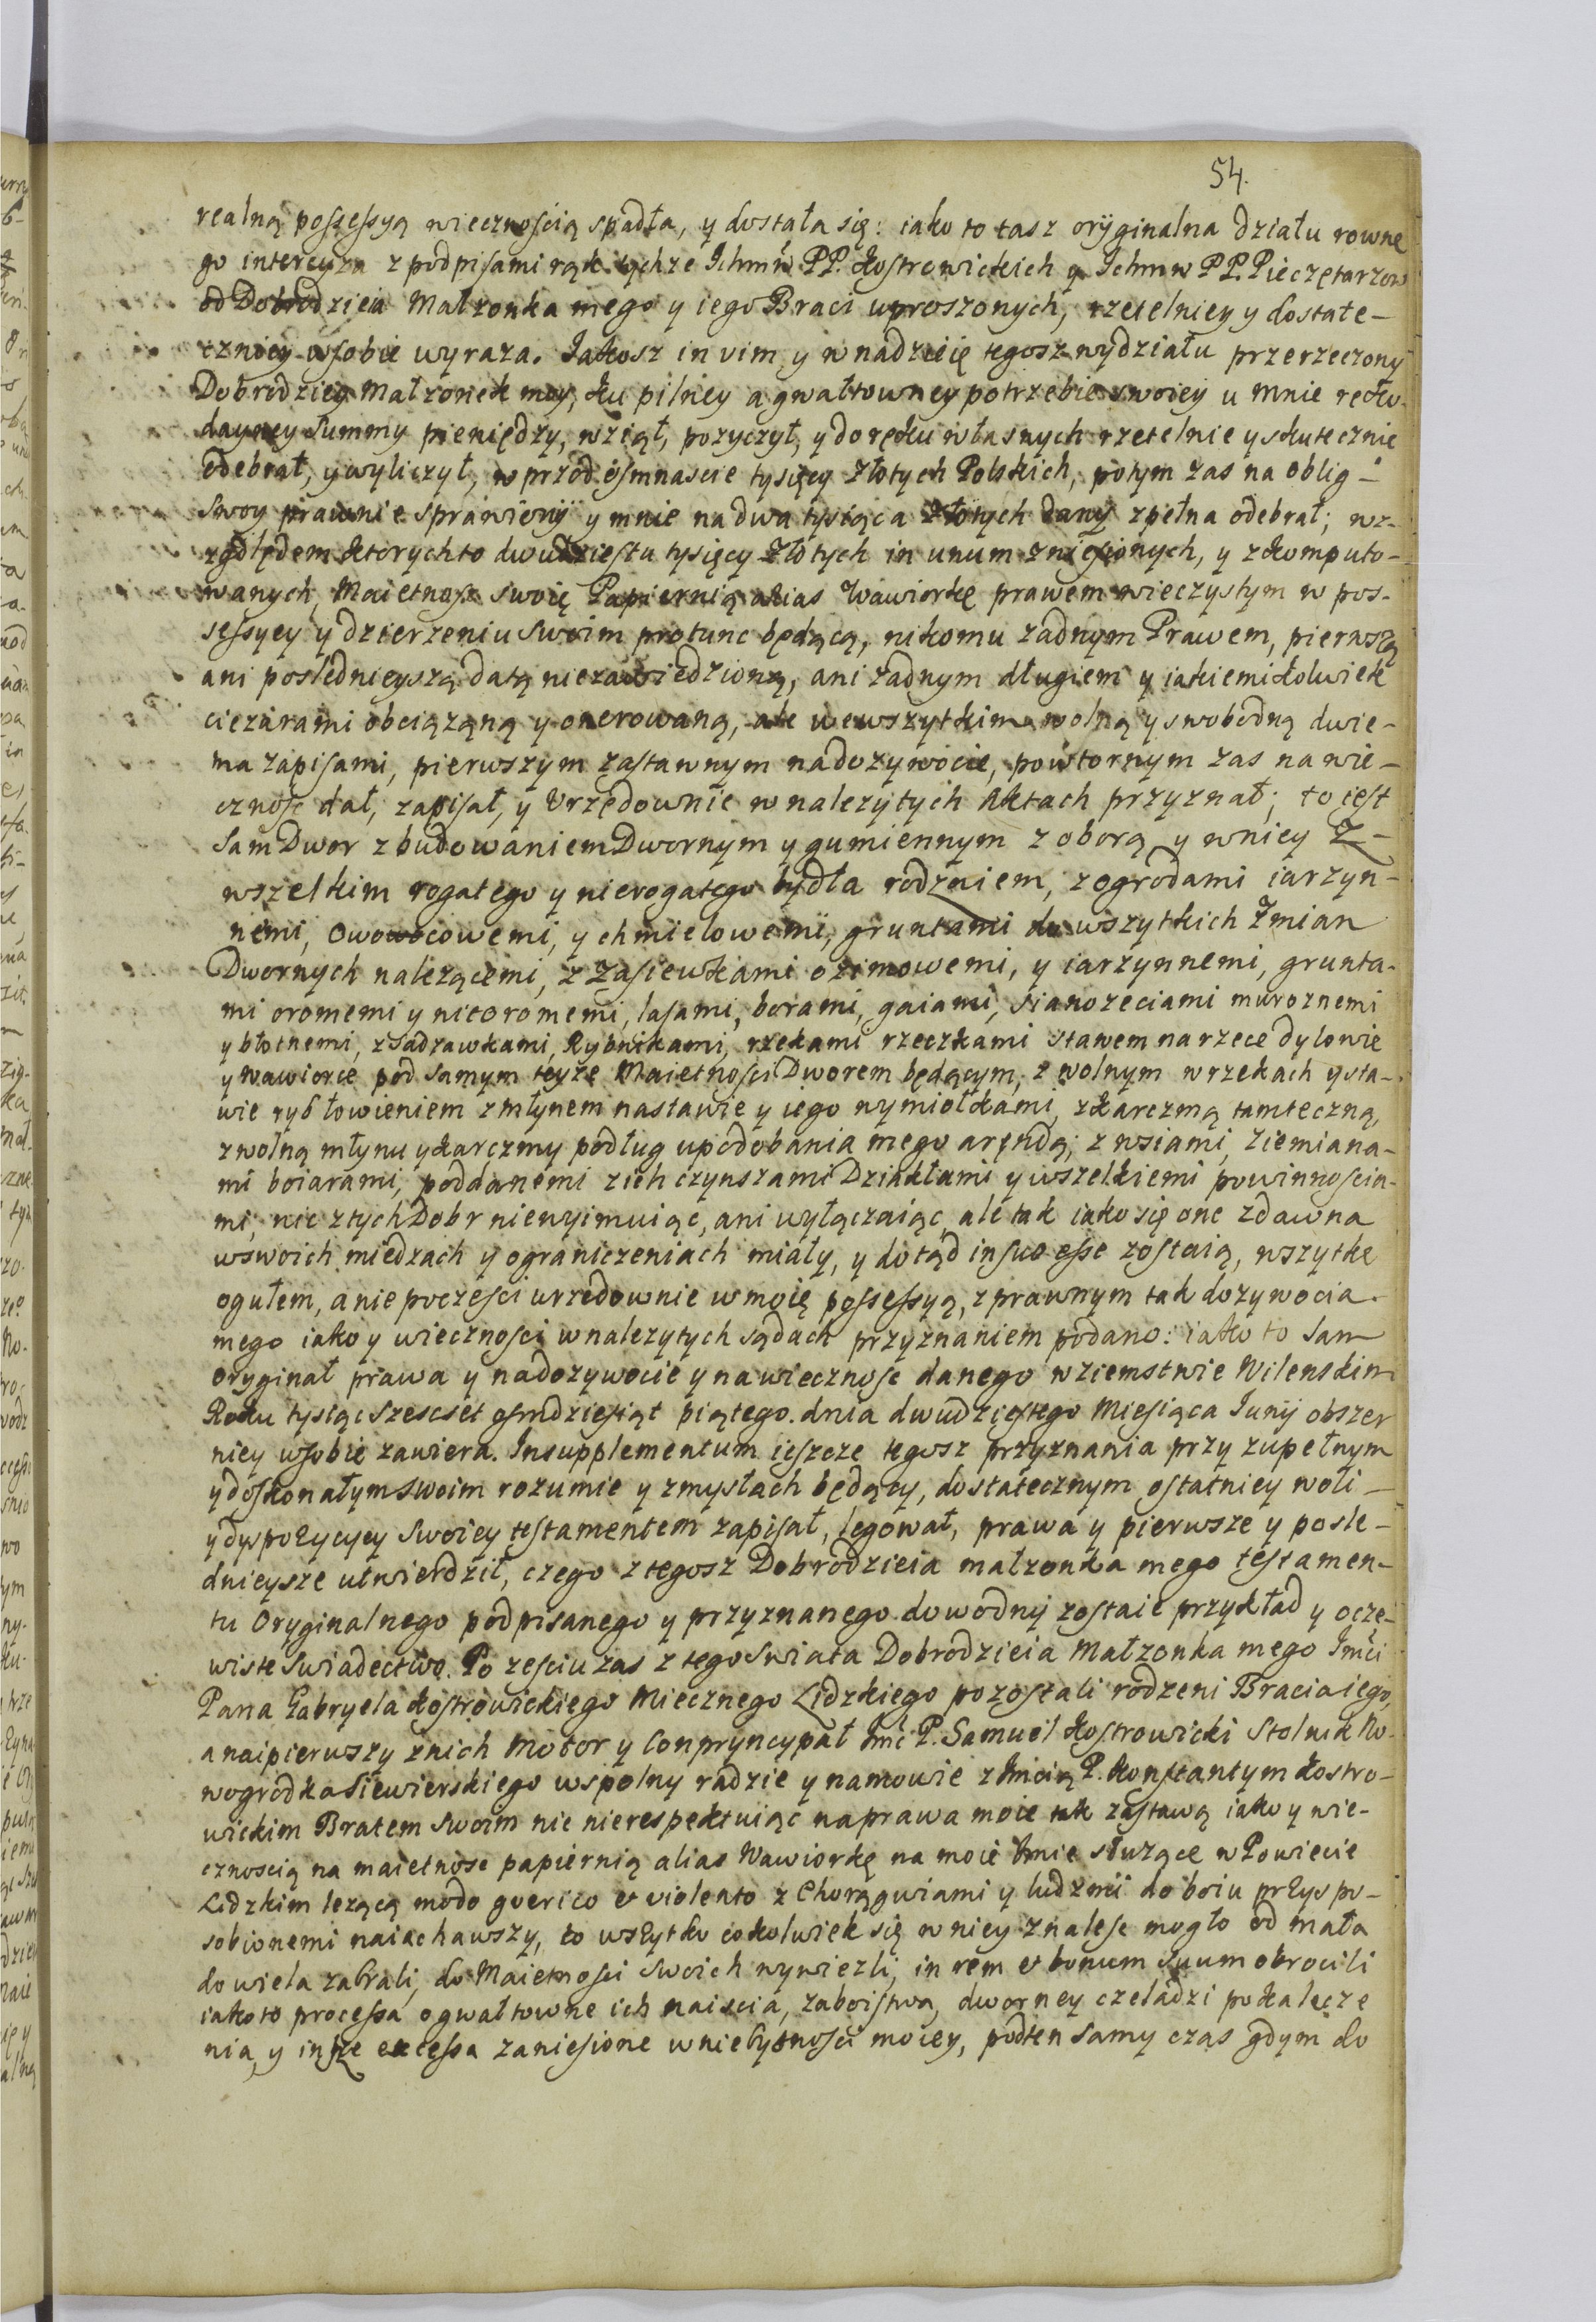 54.
realną possessyą wiecznością spadła, y dostała się: iako to tasz oryginalna działu rowne
go intercyza z podpisami rąk tychże Ichmw PP. Kostrowickich y Ichmw PP. Pieczętarzow
od Dobrodzieia Małżonka mego y iego Braci uproszonych, rzetelniey y dostate-
czniey w sobie wyraza. Jakosz in vim y w nadzieię tegosz wydziału przerzeczony
Dobrodziey Małzonek moy, ku pilney a gwałtowney potrzebie swoiey u mnie ręko-
dayney Summy pieniędzy, wziął, pozyczył, y do ręku własnych rzetelnie y skutecznie
odebrał, y wyliczył, w przod osmnascie tysięcy Złotych Polskich, potym zas na oblig
Swoy prawnie sprawiony y mnie na dwa tysiąca Złotych dany zpełna odebrał; wz-
zględem ktorychto dwudziestu tysięcy Złotych in unum zniesionych, y zkomputo-
wanych, Maiętnosc swoię Papiernią alias Wawiorkę prawem wieczystym w pos-
sessyey y dzierzeniu swoim protunc będącą, nikomu zadnym Prawem, pierwszą
ani poslednieyszą datą niezawiedzioną, ani żadnym długiem y iakiemikolwiek
ciezarami obciązaną y onerowaną, ale wewszytkim wolną y swobodną dwie-
ma zapisami, pierwszym zastawnym nadozywocie, powtornym zas na wie-
cznosc dał, zapisał, y Urzędownie w nalezytych Aktach przyznał; to iest
Sam Dwor z budowaniem Dwornym y gumiennym z oborą y w niey z-
wszelkim rogatego y nierogatego bydła rodzaiem, z ogrodami iarzyn-
nemi, owowocowemi, y chmielowemi, gruntami do wszytkich Zmian
Dwornych nalezącemi, z Zasiewkami ozimowemi, y iarzynnemi, grunta-
mi oromemi y nieoromemi, lasami, borami, gaiami, sianozeciami muroznemi
y błotnemi, z sadzawkami, Rybnikami, rzekami rzeczkami stawem na rzece dylowie
y Wawiorce pod samym teyze Maiętności Dworem będącym, z wolnym w rzekach y sta-
wie ryb łowieniem z młynem nastawie y iego wymiołkami, z karczmą tamteczną,
z wolną młynu y karczmy podług upodobania mego arędą; z wsiami, Ziemiana-
mi boiarami, poddanemi z ich czynszami Dziakłami y wszelkiemi powinnoscia-
mi, nic z tych Dobr niewyimuiąc, ani wyłączaiąc, ale tak iako się one zdawna
w swoich miedzach y ograniczeniach miały, y dotąd in suo esse zostaią, wszytke
ogułem, a nie poczęsci urzędownie w moię possessyą, z prawnym tak dozywocia
mego iako y wiecznosci w nalezytych sądach przyznaniem podano: iako to sam
oryginał prawa y nadozywocie y na wiecznosc danego w ziemstwie Wilenskim
Roku tysiąc szescset osmdziesiąt piątego dnia dwudziestego Miesiąca Junij obszer
niey w sobie zawiera. In supplementum ieszcze tegosz przyznania przy zupełnym
y doskonałym swoim rozumie y zmysłach będący, dostatecznym ostatniey woli
y dyspozycyey Swoiey testamentem zapisał, legował, prawa y pierwsze y posle-
dnieysze utwierdził, czego z tegosz Dobrodzieia małzonka mego testamen-
tu Oryginalnego podpisanego y przyznanego dowodny zostaie przykład y oczę-
wiste swiadectwo. Po zesciu zas z tego swiata Dobrodzieia Małzonka mego Imci
Pana Gabryela Kostrowickiego Miecznego Lidzkiego pozostali rodzeni Bracia iego,
a naipierwszy z nich Motor y Conpryncypał Imć P. Samuel Kostrowicki Stolnik No-
wogrodka Siewierskiego wspolny radzie y namowie z Imcią P. Konstantym Kostro-
wickim Bratem swoim nic nierespektuiąc na prawa moie tak zastawą iako y wie-
cznoscią na maiętnosc papiernią alias Wawiorkę na moie Imie słuzące w Powiecie
Lidzkim lezącą modo guerico et violento z Chorągwiami y ludzmi do boiu przyspo-
sobionemi naiachawszy, to wszytko cokolwiek się w niey znalesc mogło od mała
do wiela zabrali, do Maiętnosci swoich wywiezli, in rem et bonum suum obrocili
iako to processa o gwałtowne ich naiscia, zaboistwa, dworney czeladzi pokalecze
nia, y insze excessa zaniesione w niebytnosci moiey, podten samy czas gdym do